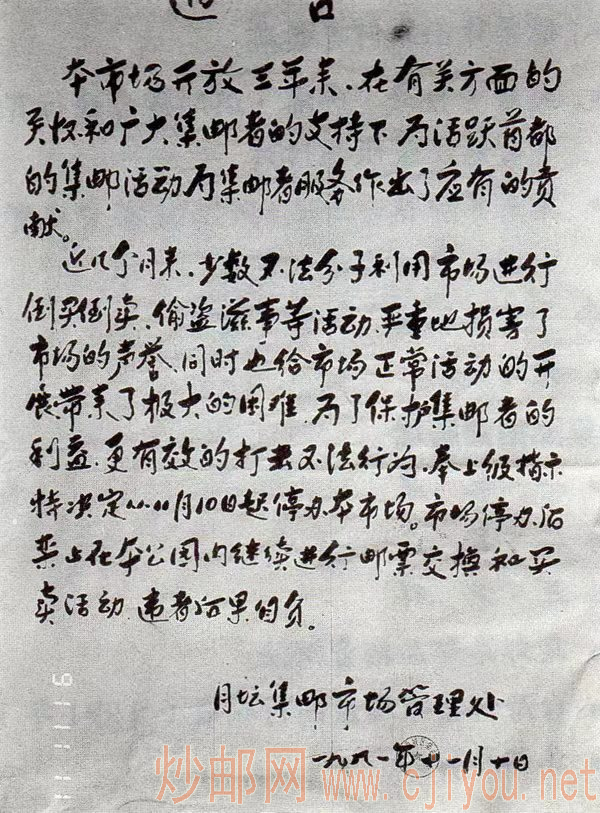 通告
本市场开放三年来、在有关方面的
关怀和广大集邮者的支持下为活跃首都
的集邮活动为集邮者服务作出了应有的贡
献。
近几个月来、少数不法分子利用市场进行
倒买倒卖、偷盗滋事等活动、严重地损害了
市场的声誉、同时也给市场正常活动的开
展带来了极大的困难、为了保护集邮者的
利益、更有效的打击不法行为、奉上级指示
特决定从11月10日起停办本市场。市场停办后
禁止在本公园内继续进行邮票交换和买
卖活动、违者后果自负。
月坛集邮市场管理处
一九九一年十一月十日
炒邮网 www.cjiyou.net